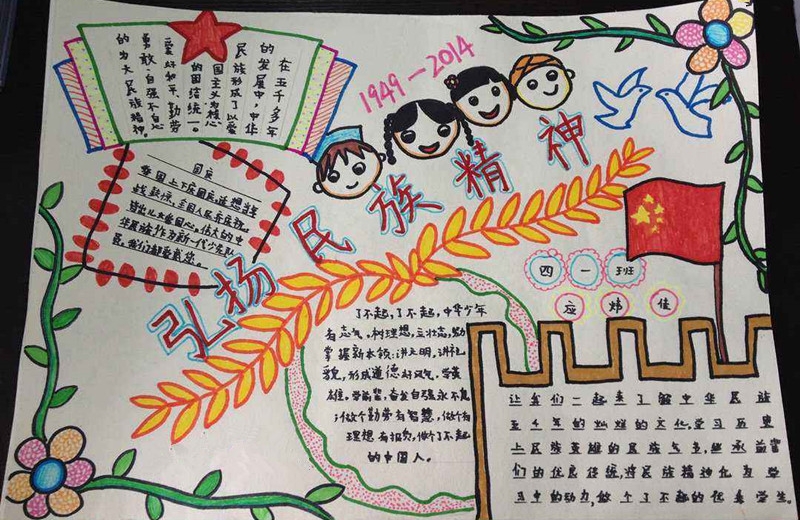 在五千多年
的发展中，中华
民族形成了以爱
国主义为核心
的团结统一
爱好和平、勤劳
勇敢自强不息
的伟大民族精神。
1949－2014
弘扬民族精神
国庆
举国上下庆国庆，遥想当年
战鼓惊，全国人民齐庆祝，
皆出儿女爱国心。伟大的中
华民族作为新一代少先队
员，我们都爱戴您。
四一班
应炜佳
了不起，了不起，中华少年
有志气，树理想，立壮志，
掌握新本领：讲文明，讲礼
貌，形成道德好风气，学英
雄，学前辈，奋发自强永不息
；做个勤劳有智慧，做个有
理想有抱负，做个了不起
的中国人。
让我们一起来了解中华民族
五千年的灿烂的文化，学习历史
上民族英雄的民族气节，继承
们的优良传统，将民族精神化为学
习中的动力，做个了不起的优秀学生。